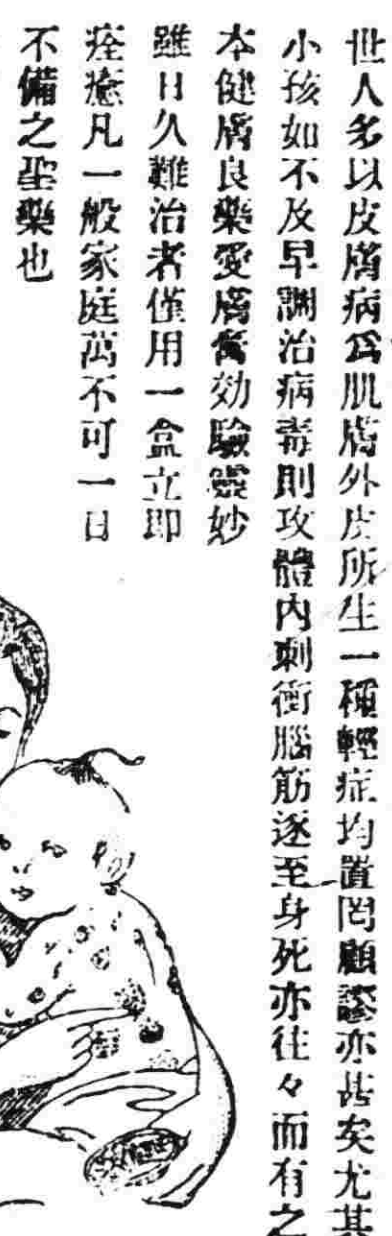 世人多以皮膚病為肌膚外皮所生一種輕症均置罔顧謬亦甚矣尤其
小孩如不及早調治病毒則攻體內刺衝腦筋遂至身死亦往々而有之
本健膚良藥愛膚膏効驗靈妙
雖日久難治者僅用一盒立即
痊癒凡一般家庭萬不可一日
不備之聖藥也